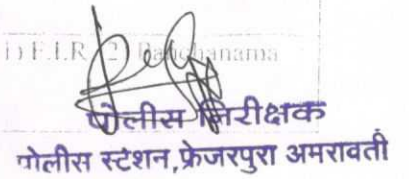 1) F.I.R. 2) Panchanama
पोलीस निरीक्षक
पोलीस स्टेशन,फ्रेजरपुरा अमरावती